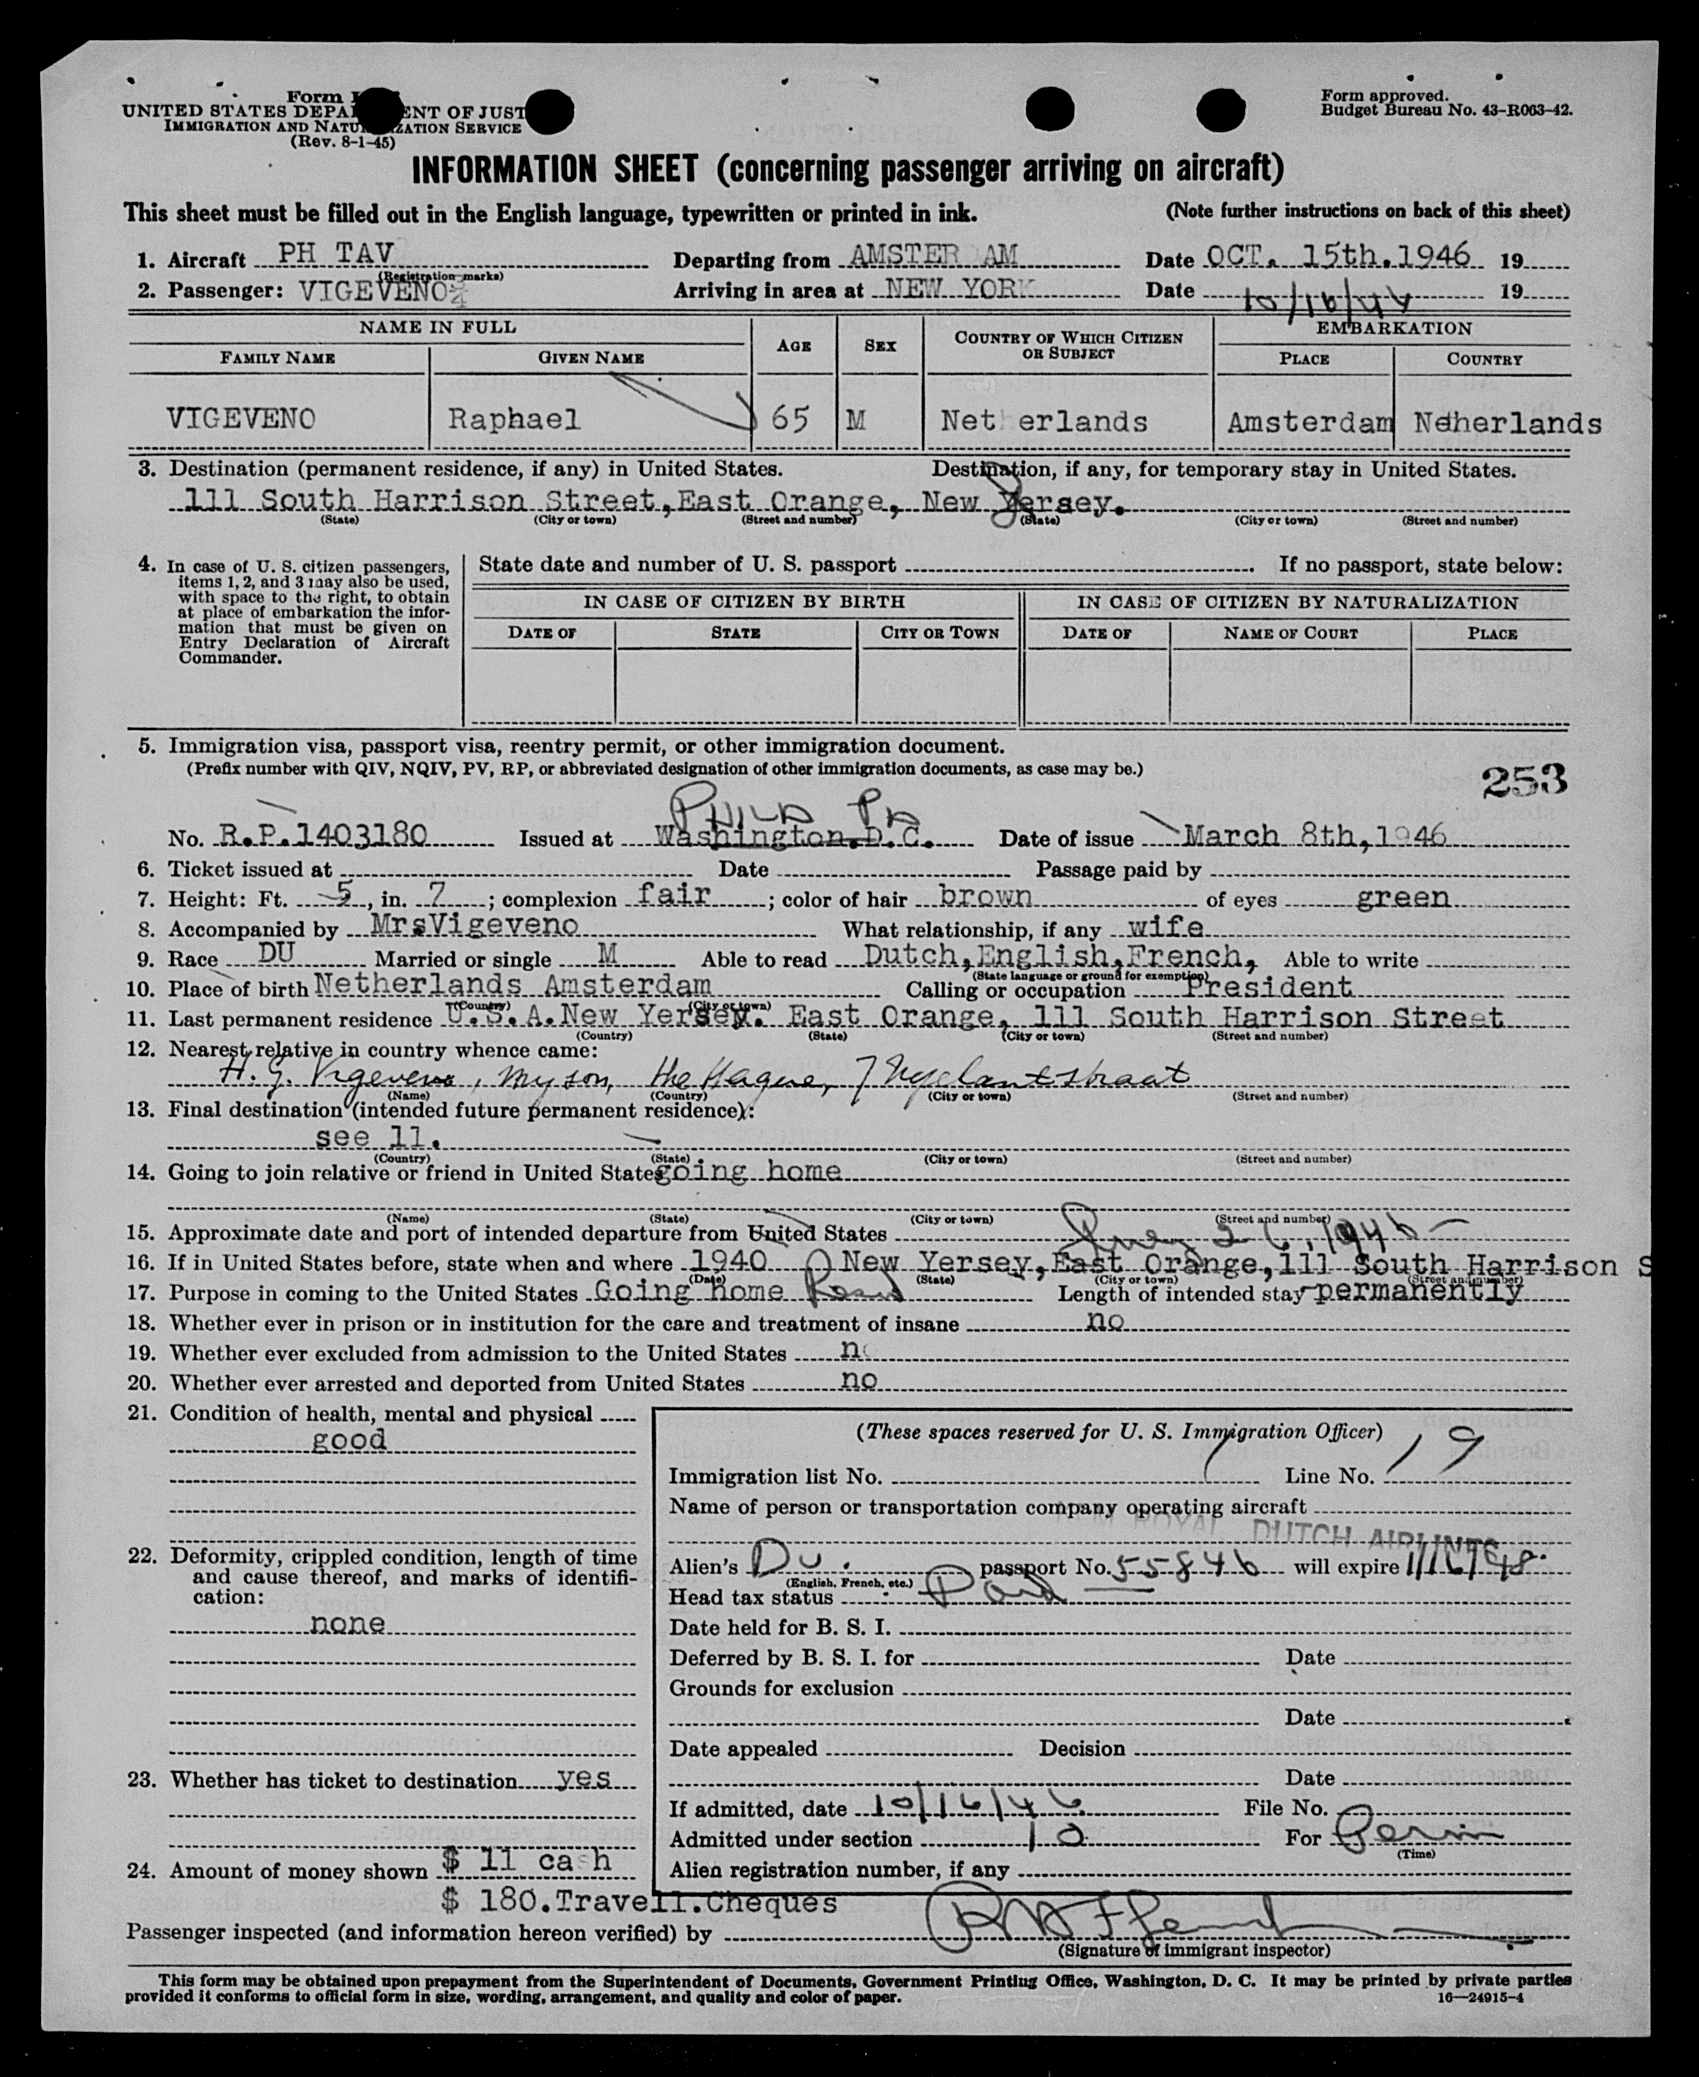 Form I
UNITED STATES DEPA ENT OF JUST
IMMIGRATION AND NATU ZATION SERVICE
(Rev. 8-1-45)
Form approved.
Budget Bureau No. 43-R063-42.
INFORMATION SHEET (concerning passenger arriving on aircraft)
This sheet must be filled out in the English language, typewritten or printed in ink. (Note further instructions on back of this sheet)
1. Aircraft PH TAV Departing from AMSTER AM Date OCT. 15th.1946 19
(Registration marks)
2. Passenger: VIGEVENO Arriving in area at NEW YORK Date 10/16/46 19
NAME IN FULL AGE SEX COUNTRY OF WHICH CITIZEN OR SUBJECT EMBARKATION
FAMILY NAME GIVEN NAME PLACE COUNTRY
VIGEVENO Raphael 65 M Net erlands Amsterdam Netherlands
3. Destination (permanent residence, if any) in United States. Destination, if any, for temporary stay in United States.
111 South Harrison Street,East Orange, New Yersey.
(State) (City or town) (Street and number) (State) (City or town) (Street and number)
4. In case of U. S. citizen passengers, items 1, 2, and 3 may also be used, with space to the right, to obtain at place of embarkation the information that must be given on Entry Declaration of Aircraft Commander.
State date and number of U. S. passport . If no passport, state below:
IN CASE OF CITIZEN BY BIRTH IN CASE OF CITIZEN BY NATURALIZATION
DATE OF STATE CITY OR TOWN DATE OF NAME OF COURT PLACE
5. Immigration visa, passport visa, reentry permit, or other immigration document.
(Prefix number with QIV, NQIV, PV, RP, or abbreviated designation of other immigration documents, as case may be.)
253
PHILA PA
No. R.P.1403180 Issued at Washington.D.C. Date of issue March 8th,1946
6. Ticket issued at Date Passage paid by
7. Height: Ft. 5, in. 7; complexion fair; color of hair brown of eyes green
8. Accompanied by MrsVigeveno What relationship, if any wife
9. Race DU Married or single M Able to read Dutch,English,French, Able to write
(State language or ground for exemption)
10. Place of birth Netherlands Amsterdam Calling or occupation President
(Country) (City or town)
11. Last permanent residence U.S.A.New Yersey. East Orange, 111 South Harrison Street
(Country) (State) (City or town) (Street and number)
12. Nearest relative in country whence came:
H. G. Vigeveno, my son, the Hague, 7
(Name) (Country) (City or town) (Street and number)
13. Final destination (intended future permanent residence):
see 11.
(Country) (State) (City or town) (Street and number)
14. Going to join relative or friend in United States going home
(Name) (State) (City or town) (Street and number)
15. Approximate date and port of intended departure from United States 1946
16. If in United States before, state when and where 1940 New Yersey,East Orange,111 South Harrison S
(Date) (State) (City or town) (Street and number)
17. Purpose in coming to the United States Going home Length of intended stay permanently
18. Whether ever in prison or in institution for the care and treatment of insane no
19. Whether ever excluded from admission to the United States no
20. Whether ever arrested and deported from United States no
21. Condition of health, mental and physical
good
22. Deformity, crippled condition, length of time and cause thereof, and marks of identification:
none
23. Whether has ticket to destination yes
24. Amount of money shown $ 11 ca h
$ 180.Travell.Cheques
(These spaces reserved for U. S. Immigration Officer)
Immigration list No. 1 Line No. 19
Name of person or transportation company operating aircraft
ROYAL DUTCH AIRLINES
Alien's Du. passport No. 55846 will expire 1/16/48.
(English, French, etc.)
Head tax status Paid
Date held for B. S. I.
Deferred by B. S. I. for Date
Grounds for exclusion
Date
Date appealed Decision
Date
If admitted, date 10/16/46 File No.
Admitted under section 10 For Perm
(Time)
Alien registration number, if any
Passenger inspected (and information hereon verified) by
(Signature of immigrant inspector)
This form may be obtained upon prepayment from the Superintendent of Documents, Government Printing Office, Washington, D. C. It may be printed by private parties
provided it conforms to official form in size, wording, arrangement, and quality and color of paper.
16—24915-4